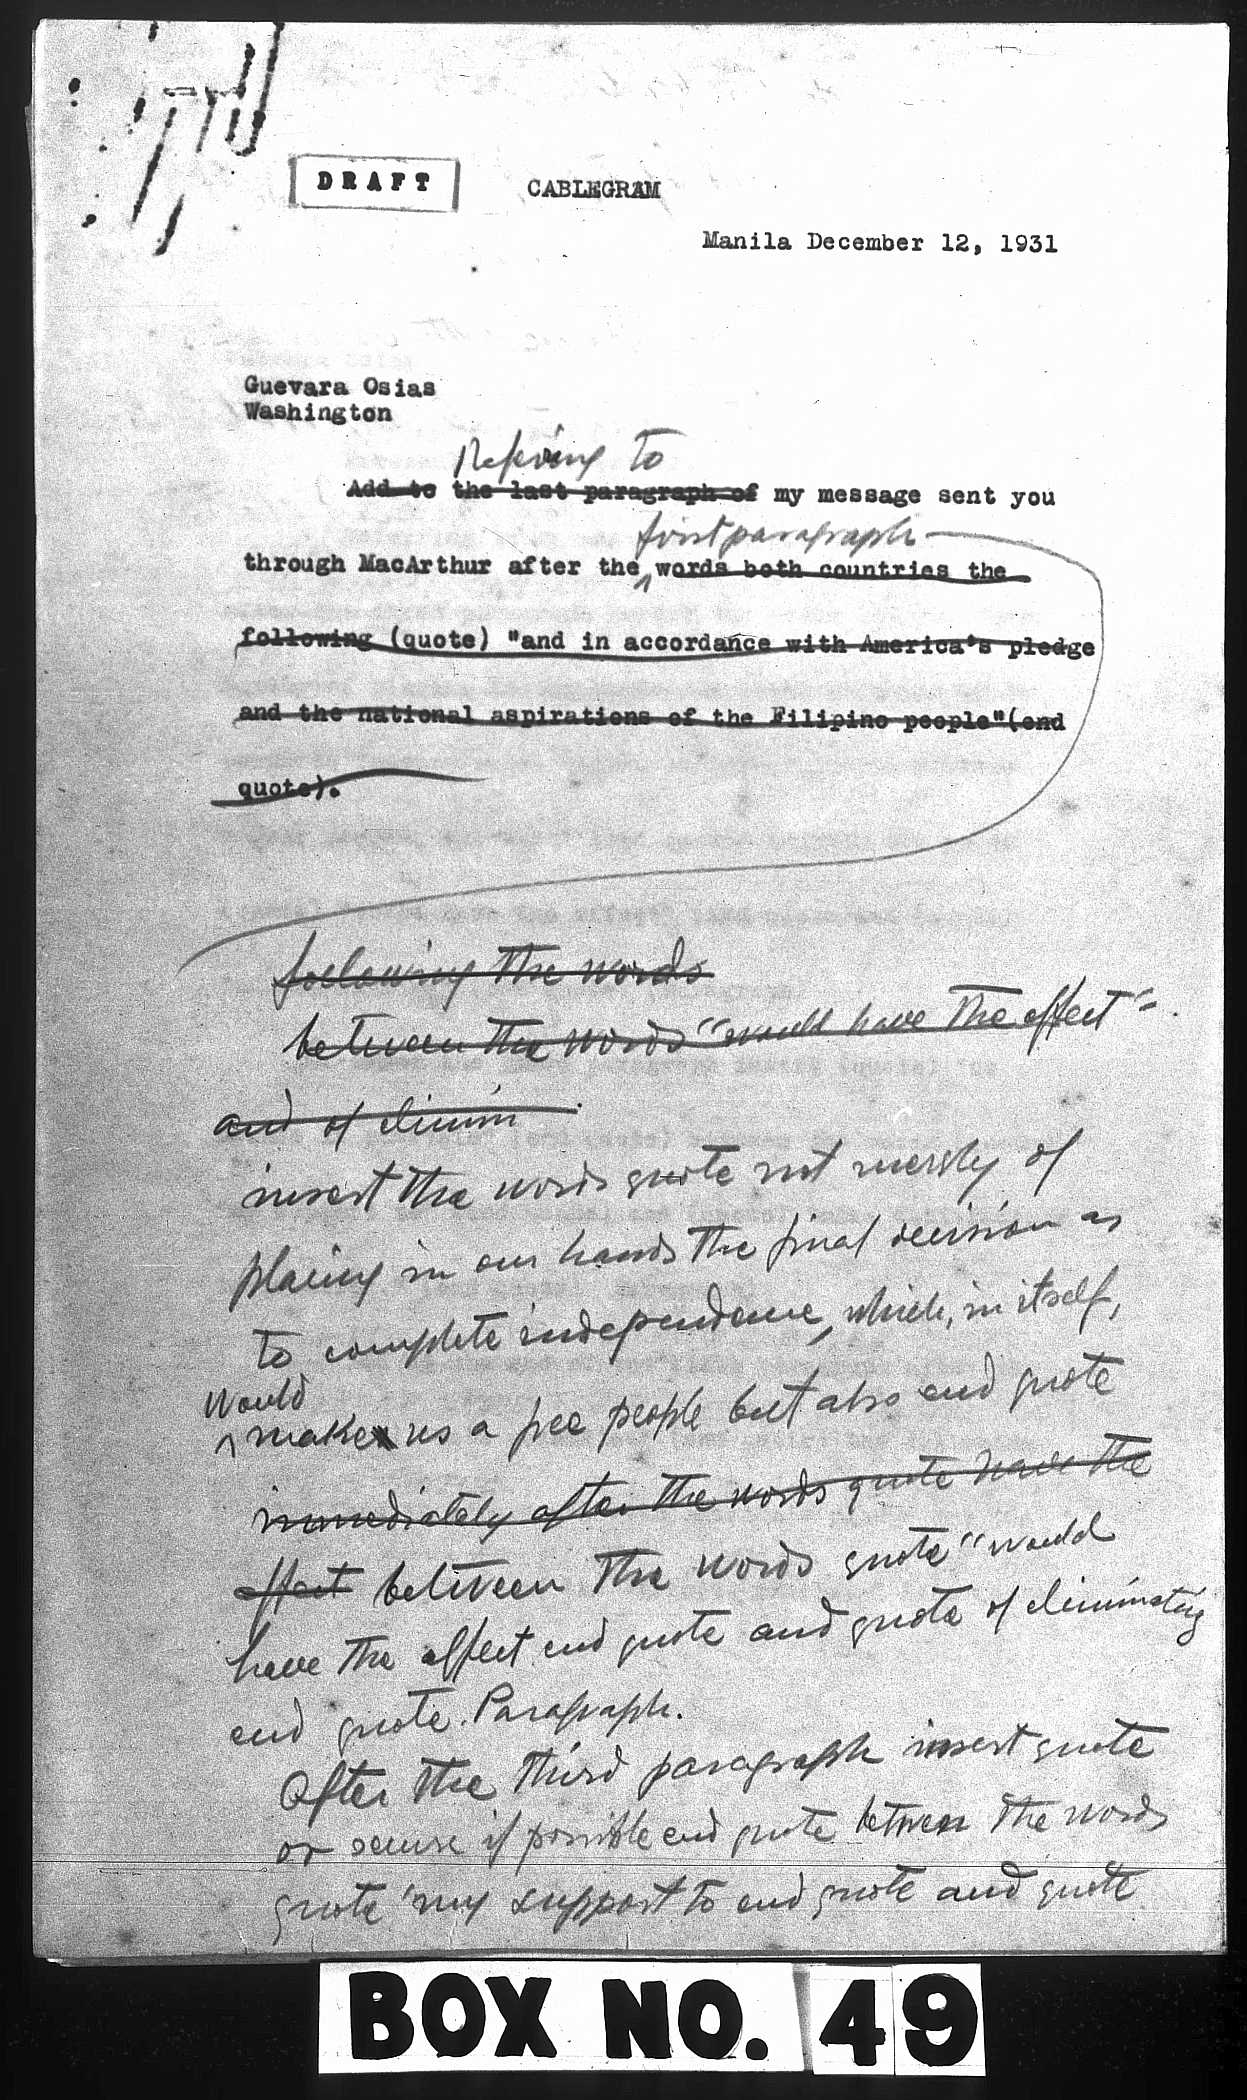 DRAFT
CABLEGRAM
Manila December 12, 1931
Guevara Osias
Washington
Refering to
Add to the last paragraph of my message sent you
first paragraph
through MacArthur after the words both countries the
following (quote) "and in accordance with America's pledge
and the national aspirations of the Filipino people"(end
quote).
following the words
between the words "would have the effect"
and of elimin
insert the words quote not merely of
placing in our hands the final decision as
to complete independence, which, in itself,
would
make us a free people but also end quote
immediately after the words quote have the
effect between the words quote "would
have the effect end quote and quote of eliminating
end quote. Paragraph.
After the third paragraph insert quote
or secure if possible end quote between the words
quote my support to end quote and quote
BOX NO. 49